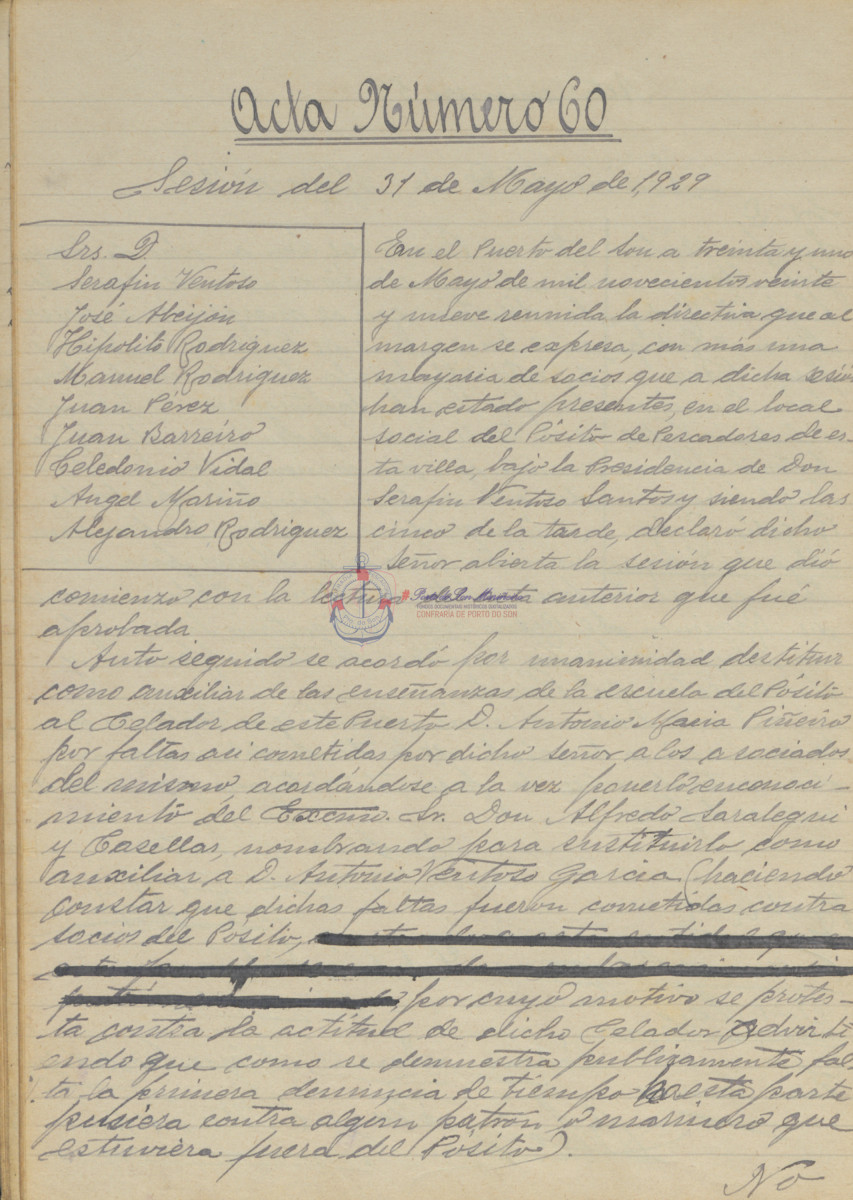 Acta Número 60
Sesión del 31 de Mayo de 1,929
Srs. D.
Serafin Ventoso
José Abeijón
Hipolito Rodriguez
Manuel Rodriguez
Juan Pérez
Juan Barreiro
Celedonio Vidal
Angel Mariño
Alejandro Rodriguez
En el Puerto del Son a treinta y uno
de Mayo de mil novecientos veinte
y nueve reunida la directiva que al
margen se expresa, con más una
mayoria de socios que a dicha sesió
han estado presentes, en el local
social del Pósito de Pescadores de es-
ta villa, bajo la Presidencia de Don
Serafin Ventoso Santos y siendo las
cinco de la tarde, declaró dicho
Señor abierta la sesión que dió
comienzo con la lectura anterior que fue
aprobada
CONFRARÍA DE PORTO DO SON
Auto seguido se acordó por unanimidad destituir
como auxiliar de las enseñanzas de la escuela del Pósito
al Celador de este Puerto D. Antonio Maria Piñeiro
por faltas asi cometidas por dicho señor a los asociados
del mismo, acordándose a la vez ponerlo enconoci-
miento del Excmo. Sr. Don Alfredo Saralegui
y Casellas, nombrando para sustituirlo como
auxiliar a D. Antonio Ventoso Garcia (haciendo
constar que dichas faltas fueron cometidas contra
socios del Posito,
por cuyo motivo se protes-
ta contra la actitud de dicho Celador Advirti
endo que como se demuestra publizamente fal
ta la primera denuncia de tiempo ha esta parte
pusiera contra algun patrón o marinero que
estuviera fuera del Pósito).
No